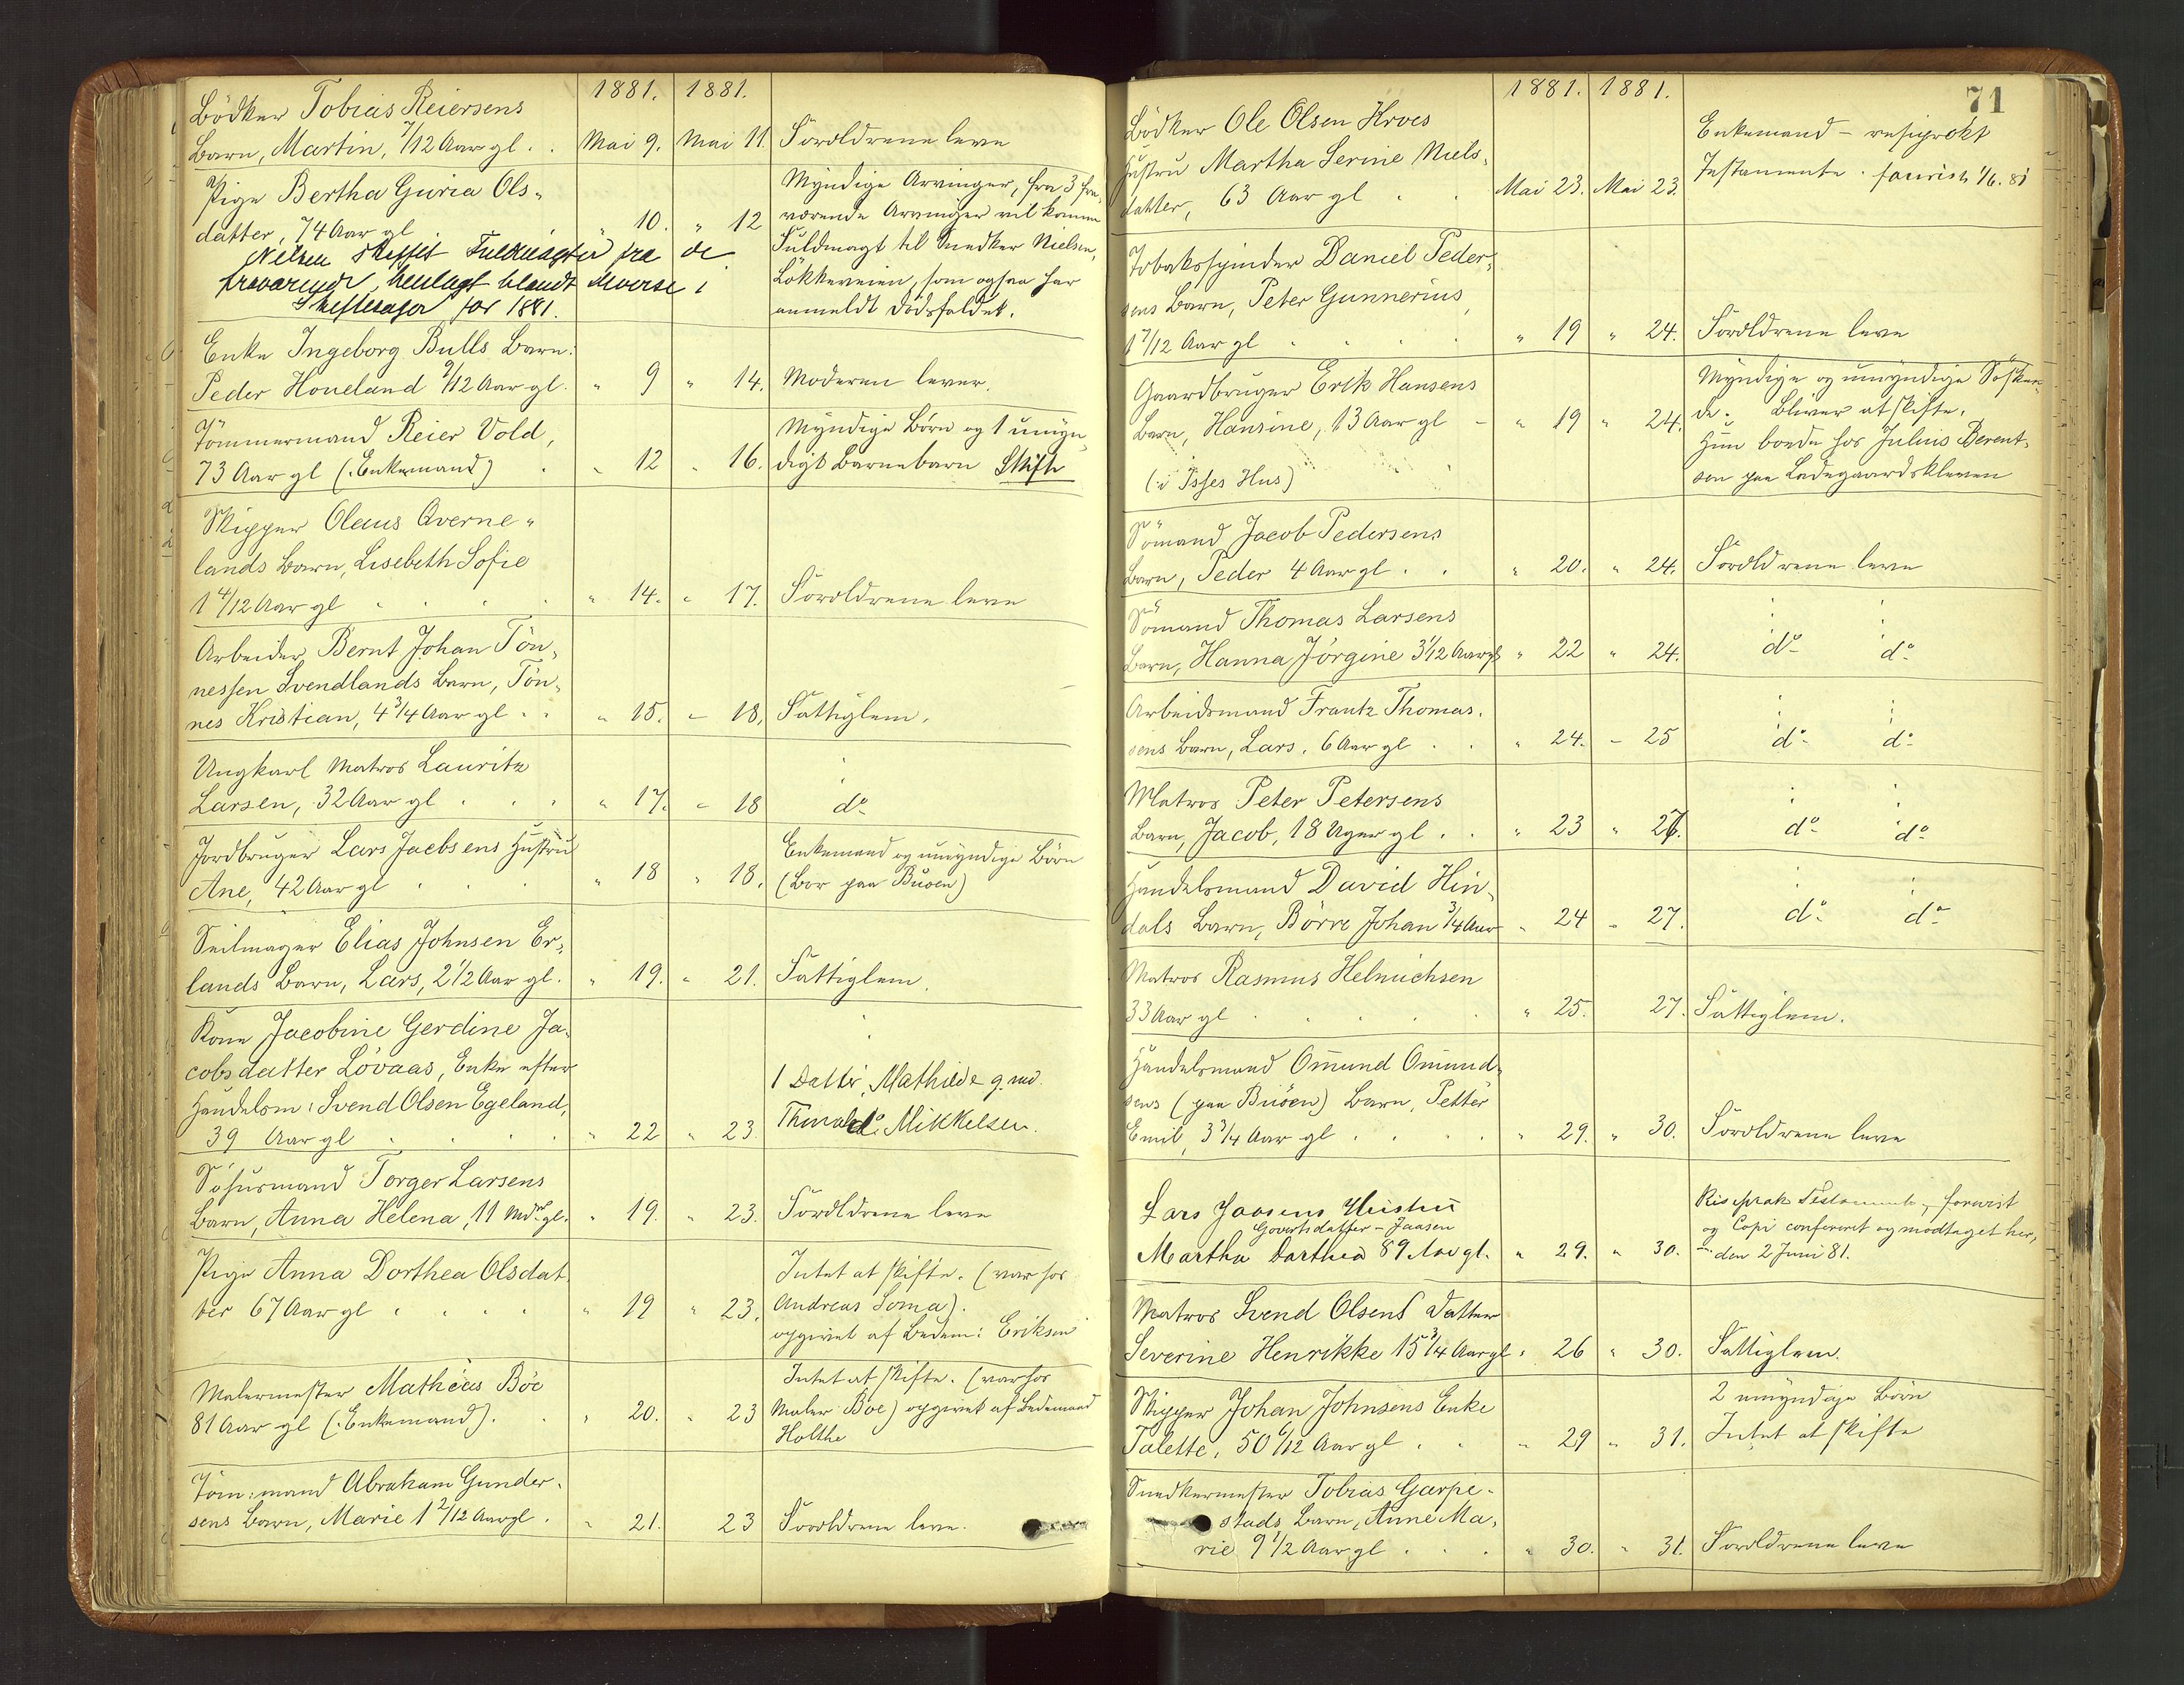 1881. 1881.
Bödker Tobias Reiersens
Barn, Martin, 7/12 Aar gl. . Mai 9. Mai 11. Forældrene leve
Pige Bertha Guria Ols-
datter, 74 Aar gl " 10. " 12
Myndige Arvinger, fra 3 fra-
værende Arvinger vil komme
Fuldmagt til Snedker Nielsen,
Lökkeveien, som ogsaa har
anmeldt Dödsfaldet.
Nielsen Fuldmagter fra de
fraværende, henlagt blandt diverse i
Skiftesager for 1881.
Enke Ingeborg Bulls Barn:
Peder Houeland 9/12 Aar gl. " 9 " 14. Moderen lever.
Tömmermand Reier Vold,
73 Aar gl (: Enkemand) . " 12 " 16.
Myndige Börn og 1 umyn-
digt Barnebarn Skifte
Skipper Olaus Qverne-
lands Barn, Lisebeth Sofie
1 4/12 Aar gl " 14. " 17. Forældrene leve
Arbeider Bernt Johan Tön-
nessen Svendlands Barn, Tön-
nes Kristian, 4 3/4 Aar gl . . " 15. - 18. Fattiglem.
Ungkarl Matros Lauritz
Larsen, 32 Aar gl . . . " 17. - 18 do
Jordbruger Lars Jacobsens Hustru
Ane, 42 Aar gl . . . " 18 " 18.
Enkemand og umyndige Börn
(Bor paa Buöen)
Seilmager Elias Johnsen Er-
lands Barn, Lars, 2 1/2 Aar gl. " 19. " 21. Fattiglem.
Kone Jacobine Gerdine Ja-
cobsdatter Lövaas, Enke efter
Handelsm: Svend Olsen Egeland,
39 Aar gl . . . . " 22 " 23.
1 Datter, Mathilde g. md.
Mikkelsen.
Söhusmand Torger Larsens
Barn, Anna Helena, 11 Mdr gl. " 19. " 23. Forældrene leve
Pige Anna Dorthea Olsdat-
ter 67 Aar gl . . . . " 19 " 23.
Intet at skifte. (var hos
Andreas Soma).
opgivet af Bedem: Eriksen
Malermester Mathias Böe
81 Aar gl (: Enkemand). . " 20. " 23
Intet at skifte. (var hos
Maler Böe) opgivet af Bedemand
Holthe
Töm: mand Abraham Gunder-
sens Barn, Marie 1 2/12 Aar gl. . " 21. 23 Forældrene leve.
71
1881. 1881.
Bödker Ole Olsen Hroes
Hustru Martha Serine Niels-
datter, 63 Aar gl . . Mai 23. Mai 23.
Enkemand - resiprokt
Testamente. forevist 1/6. 81
Tobakspinder Daniel Peder-
sens Barn, Peter Gunnerius,
1 7/12 Aar gl . . . . " 19 " 24. Forældrene leve
Gaardbruger Erik Hansens
Barn, Hansine, 13 Aar gl - " 19 " 24.
(i Hus)
Myndige og umyndige Sösken-
de. Bliver at skifte.
Hun boede hos Julius Berent-
sen paa Ladegaardskleven
Sömand Jacob Pedersens
Barn, Peder 4 Aar gl . . " 20. " 24. Forældrene leve
Sömand Thomas Larsens
Barn, Hanna Jörgine 3 1/12 Aar gl " 22 " 24. do do
Arbeidsmand Frantz Thomas-
sens Barn, Lars, 6 Aar gl . . " 24. - 25 do do
Matros Peter Petersens
Barn, Jacob, 18 Uger gl . . " 23 " 27. do do
Handelsmand David Hin-
dals Barn, Börre Johan 3/4 Aar " 24 " 27. do do
Matros Rasmus Helmichsen
33 Aar gl . . . . " 25. 27. Fattiglem.
Handelsmand Omund Omund-
sens (paa Buöen) Barn, Petter
Emil, 3 3/4 Aar gl . . . . " 29. " 30. Forældrene leve
Lars Jaasens Hustru
Govertsdatter - Jaasen
Martha Dorthea 89 Aar gl. " 29. " 30.
Testamente, forevist
og Copi confereret og modtaget her,
den 2 Juni 81.
Matros Svend Olsens Datter
Severine Henrikke 15 3/4 Aar gl " 26 " 30. Fattiglem.
Skipper Johan Johnsens Enke
Talette, 50 6/12 Aar gl . . " 29 " 31.
2 umyndige Börn
Intet at skifte
Snedkermester Tobias Garpe-
stads Barn, Anne Ma-
rie 9 1/2 Aar gl . . . " 30. " 31. Forældrene leve